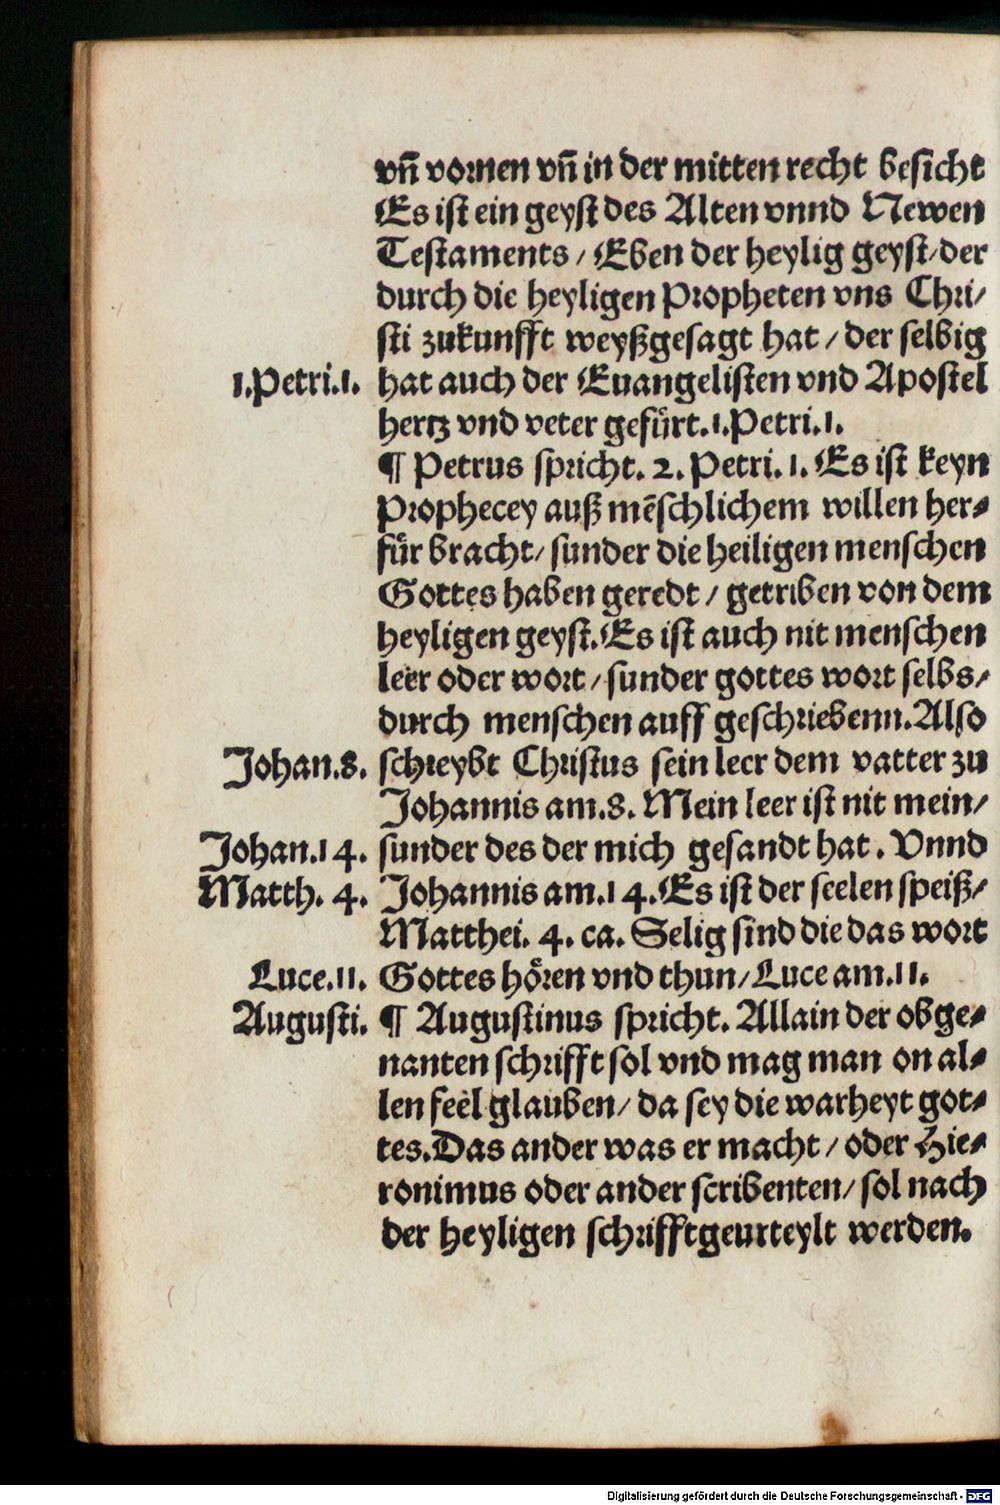 vn̄ vornen vn̄ in der mitten recht besicht
Es ist ein geyst des Alten vnnd Newen
Testaments / Eben der heylig geyst / der
durch die heyligen Propheten vns Chri/
sti zukunfft weyßgesagt hat / der selbig
1.Petri.1. hat auch der Euangelisten vnd Apostel
hertz vnd veter gefu̇rt.1.Petri.1.
¶ Petrus spricht. 2. Petri. 1. Es ist keyn
Prophecey auß mēschlichem willen her⸗
fu̇r bracht / sunder die heiligen menschen
Gottes haben geredt / getriben von dem
heyligen geyst. Es ist auch nit menschen
leer oder wort / sunder gottes wort selbs /
durch menschen auff geschriebenn. Also
Johan.8. schreybt Christus sein leer dem vatter zu
Johannis am.8. Mein leer ist nit mein /
Johan.14. sunder des der mich gesandt hat. Vnnd
Matth. 4. Johannis am.14. Es ist der seelen speiß /
Matthei. 4. ca. Selig sind die das wort
Luce.11. Gottes hören vnd thun / Luce am.11.
Augusti. ¶ Augustinus spricht. Allain der obge⸗
nanten schrifft sol vnd mag man on al⸗
len feel glauben / da sey die warheyt got⸗
tes. Das ander was er macht / oder Hie⸗
ronimus oder ander scribenten / sol nach
der heyligen schrifft geurteylt werden.
Digitalisierung gefördert durch die Deutsche Forschungsgemeinschaft - DFG